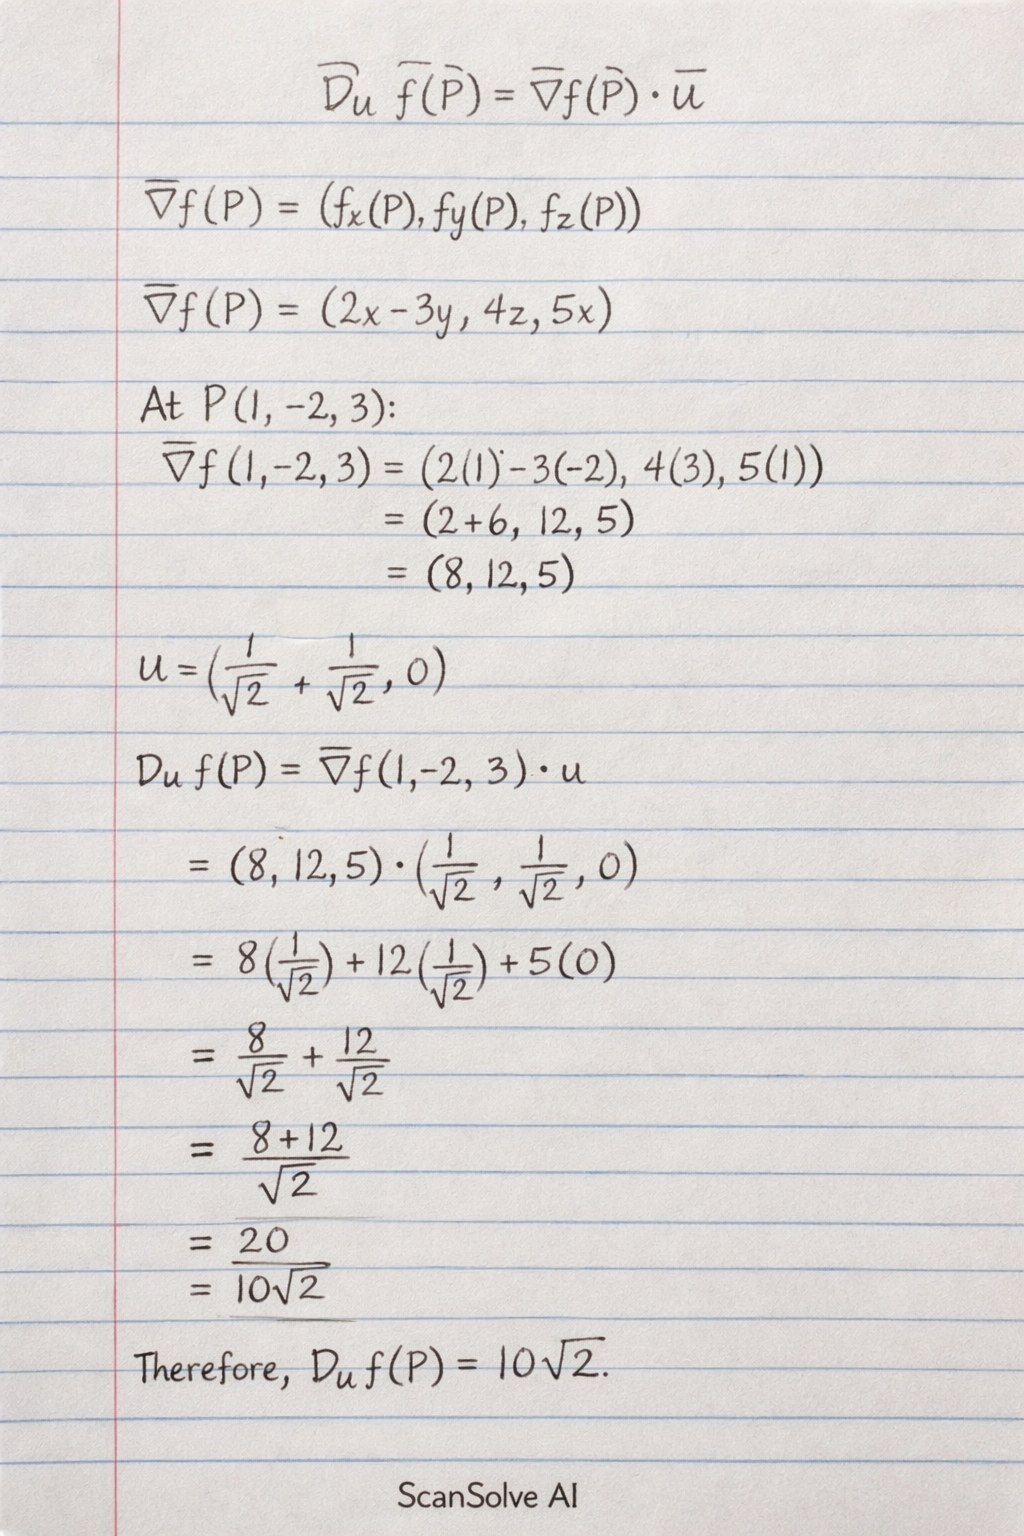 D̅u f̅(P̅) = ∇̅f(P̅) · u̅
∇̅f(P) = (fx(P), fy(P), fz(P))
∇̅f(P) = (2x-3y, 4z, 5x)
At P(1, -2, 3):
∇̅f(1,-2,3) = (2(1)-3(-2), 4(3), 5(1))
= (2+6, 12, 5)
= (8, 12, 5)
u = (1/√2 + 1/√2, 0)
Du f(P) = ∇̅f(1,-2, 3) · u
= (8, 12, 5) · (1/√2, 1/√2, 0)
= 8(1/√2) + 12(1/√2) + 5(0)
= 8/√2 + 12/√2
= (8+12)/√2
= 20
= 10√2
Therefore, Du f(P) = 10√2.
ScanSolve AI